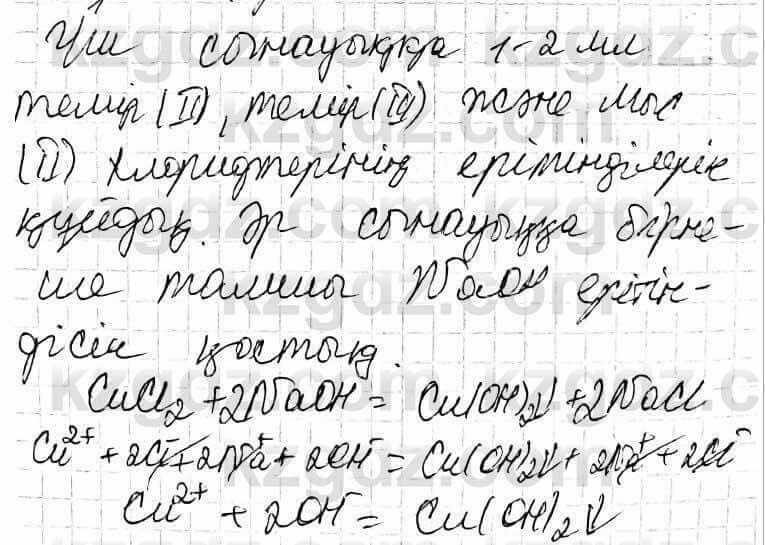 Үш сынауыққа 1-2 мл
темір (II), темір (III) және мыс
(II) хлоридтерінің ерітінділерін
құйдық. Әр сынауыққа бірне-
ше тамшы NaOH ерітін-
дісін қостық.
CuCl₂ + 2NaOH = Cu(OH)₂↓ + 2NaCl
Cu²⁺ + 2Cl⁻ + 2Na⁺ + 2OH⁻ = Cu(OH)₂↓ + 2Na⁺ + 2Cl⁻
Cu²⁺ + 2OH⁻ = Cu(OH)₂↓